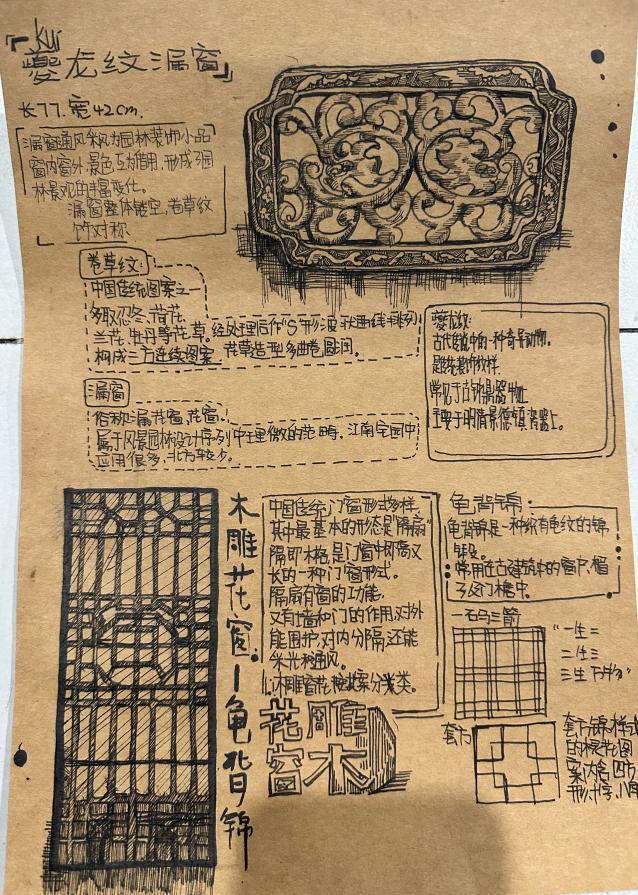 kui
「夔龙纹漏窗」
长77.宽42cm.
漏窗通风采风为园林装饰小品
窗内窗外景色互为借用,形成了园
林景观的丰富变化。
漏窗整体镂空,卷草纹
饰对称
卷草纹:
中国传统图案之一
多取忍冬、荷花、
兰花、牡丹等花草。经处理后作“S”形波状曲线排列
构成二方连续图案,花草造型多曲卷圆润。
夔龙纹:
古代传说中的一种奇异动物。
是传统装饰纹样.
常见于古铜鼎器物上
主要于明清景德镇瓷器上。
漏窗
俗称漏花窗、花窗.
属于风景园林设计序列中
江南宅园中
应用很多,北方较少。
木雕花窗—龟背锦
中国传统门窗形式多样,
其中最基本的形态是“隔扇”
隔即木格,是门窗中即高又
长的一种门窗形式。
隔扇有窗的功能,
又有墙和门的作用,对外
能围护,对内分隔,还能
采光和通风。
木雕窗花按图案分类。
龟背锦:
龟背锦是一种织有龟纹的锦
缎。
常用在古建筑中的窗户,帽
子及门檐中。
一码三箭
“一生二
二生三
三生万物”
花雕
窗木
套方
套方锦样式
的棂花图
案,内含四方
形、十字、八角